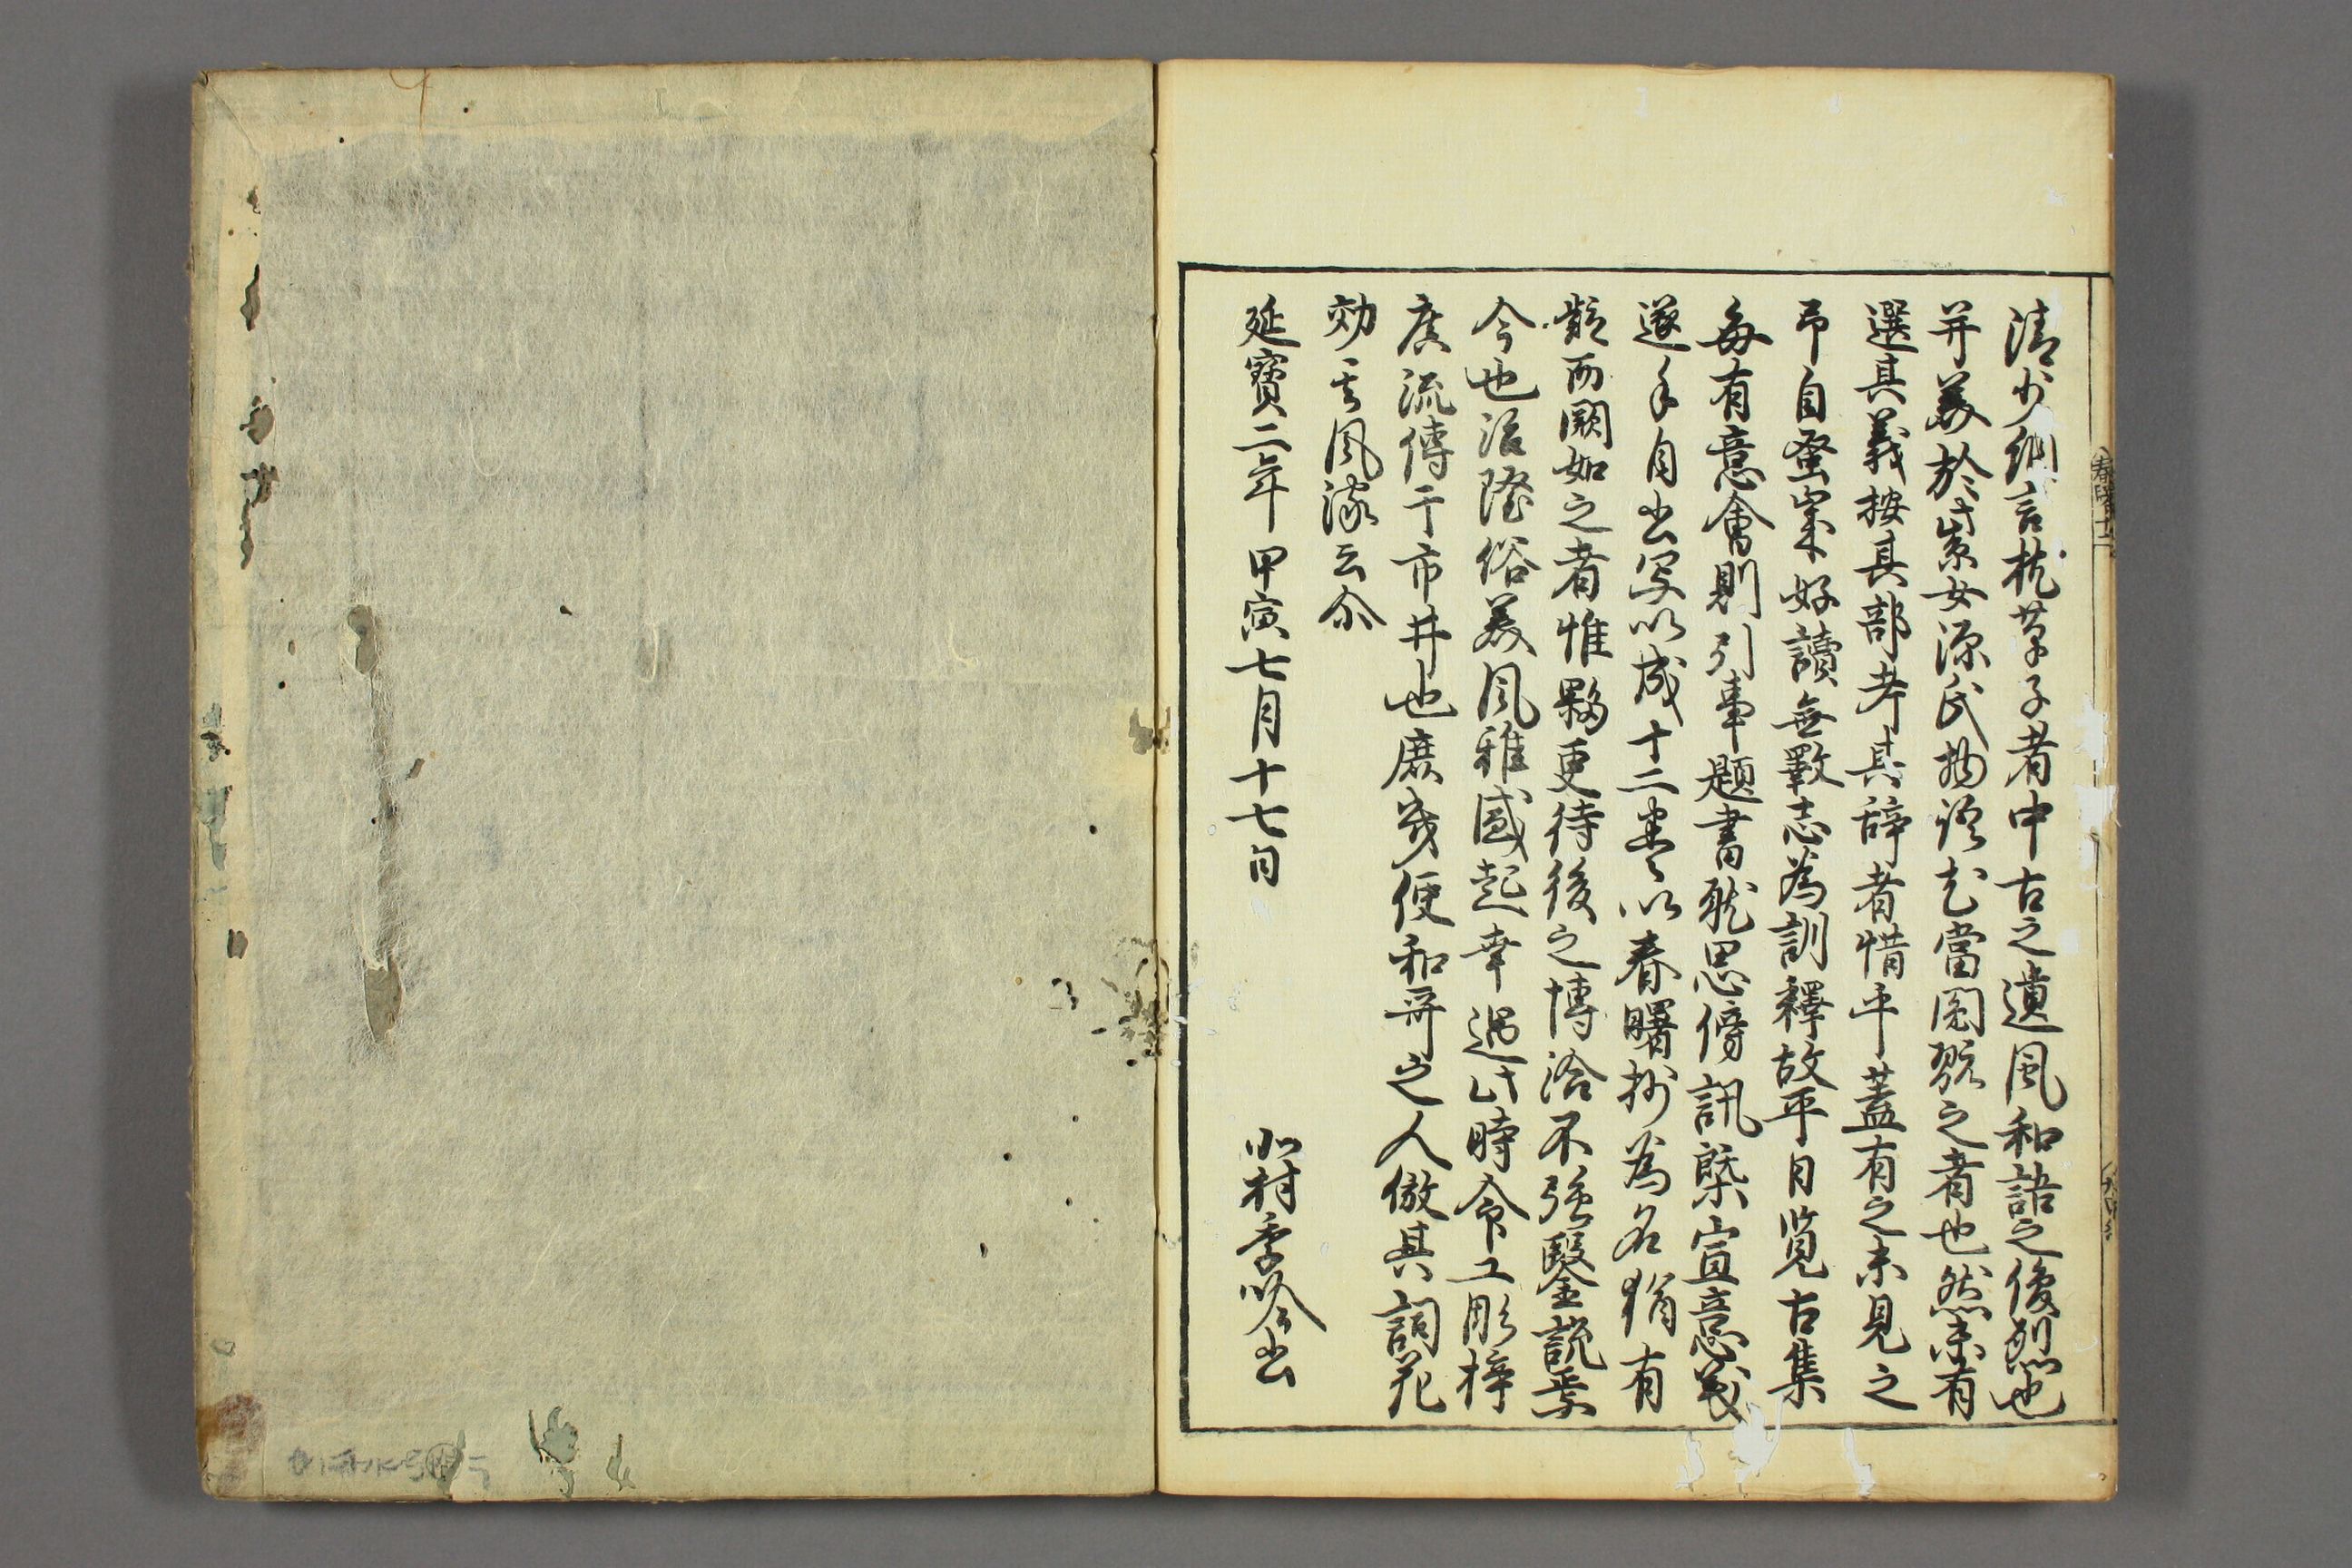 清少納言枕草子者中古之遺風和語之俊烈也
并義於紫女源氏物語尤當閲翫之者也然未有
選其義按其部考其辞者惜乎蓋有之未見之
予自蚤歳好讀無斁志為訓釋故平日覧古集
毎有意會則引事題書就思傍訊槩宣意義
遂手自書写以成十二巻以春曙抄為名猶有
齡而闕如之者惟夥更待後之博洽不強鑿説焉
今也治隆俗美風雅盛起幸遇此時令工彫梓
廣流傳于市井也庶幾使和哥之人倣其詞花
効其風流云尒
延寶二年甲寅七月十七日
北村季吟書
春曙十二